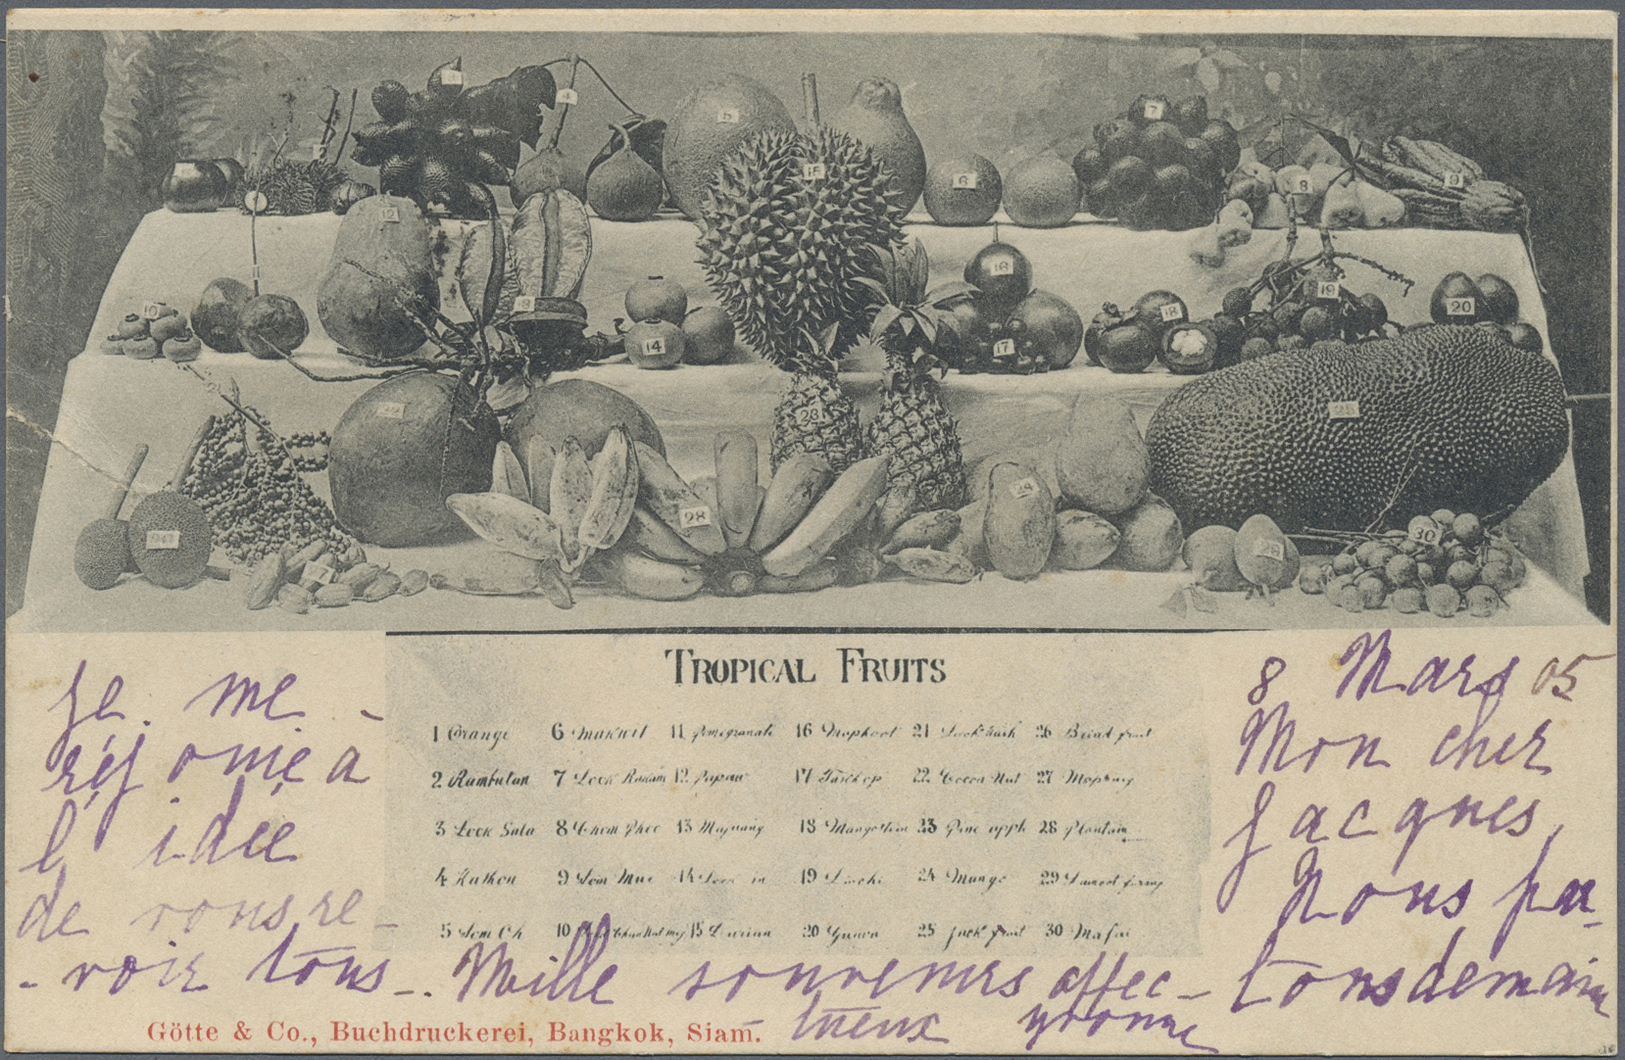 TROPICAL FRUITS
1 Orange 6 Makwit 11 Pomegranate 16 21 26 Bread fruit
2 Rambutan 7 Look 12 Papaw 17 22 Cocoa Nut 27
3 Look Sala 8 Chom Phoo 13 Mafuang 18 Mangosteen 23 Pine apple 28 Plantain
4 Kathon 9 Som Mue 14 Look in 19 Linchi 24 Mango 29
5 Som Oh 10 15 Durian 20 Guava 25 Jack fruit 30 Mafai
8 Mars 05
Mon cher
Jacques,
Nous par-
tons demain
Je me -
réjouie a
l'idée
de vous re-
-voir tous-. Mille souvenirs affec-
tueux Yvonne
Götte & Co., Buchdruckerei, Bangkok, Siam.